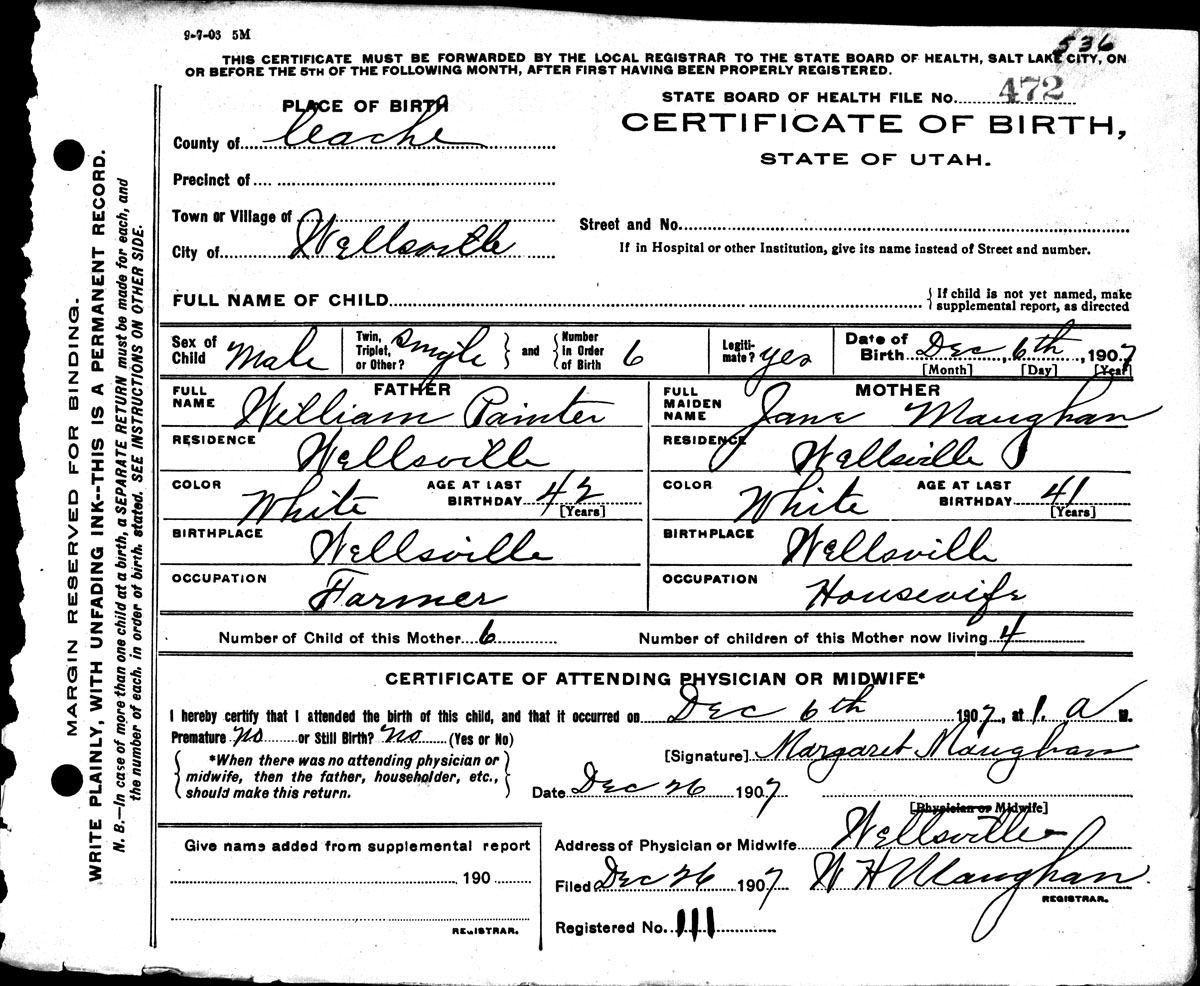 9-7-03 5M
536
THIS CERTIFICATE MUST BE FORWARDED BY THE LOCAL REGISTRAR TO THE STATE BOARD OF HEALTH, SALT LAKE CITY, ON
OR BEFORE THE 5TH OF THE FOLLOWING MONTH, AFTER FIRST HAVING BEEN PROPERLY REGISTERED.
MARGIN RESERVED FOR BINDING.
WRITE PLAINLY, WITH UNFADING INK--THIS IS A PERMANENT RECORD.
N. B.—In case of more than one child at a birth, a SEPARATE RETURN must be made for each, and
the number of each, in order of birth, stated. SEE INSTRUCTIONS ON OTHER SIDE.
PLACE OF BIRTH
STATE BOARD OF HEALTH FILE No. 472
CERTIFICATE OF BIRTH,
STATE OF UTAH.
County of Ceache
Precinct of
Town or Village of
City of Wellsville
Street and No.
If in Hospital or other Institution, give its name instead of Street and number.
FULL NAME OF CHILD
{If child is not yet named, make
supplemental report, as directed
Sex of Child Male
Twin, Triplet, or Other? Single } and { Number In Order of Birth 6
Legiti-mate? yes
Date of Birth Dec, 6th, 1907
[Month] [Day] [Year]
FATHER
FULL NAME William Painter
RESIDENCE Wellsville
COLOR White AGE AT LAST BIRTHDAY 42
[Years]
BIRTHPLACE Wellsville
OCCUPATION Farmer
MOTHER
FULL MAIDEN NAME Jane Maughan
RESIDENCE Wellsville
COLOR White AGE AT LAST BIRTHDAY 41
[Years]
BIRTHPLACE Wellsville
OCCUPATION Housewife
Number of Child of this Mother 6 Number of children of this Mother now living 4
CERTIFICATE OF ATTENDING PHYSICIAN OR MIDWIFE*
I hereby certify that I attended the birth of this child, and that it occurred on Dec 6th 1907, at 1. a M.
Premature no or Still Birth? no (Yes or No)
{ *When there was no attending physician or
midwife, then the father, householder, etc.,
should make this return. }
[Signature] Margaret Maughan
Date Dec 26 1907
[Physician or Midwife]
Address of Physician or Midwife Wellsville
Filed Dec 26 1907 W H Maughan
REGISTRAR.
Registered No. 111
Give name added from supplemental report
190
REGISTRAR.